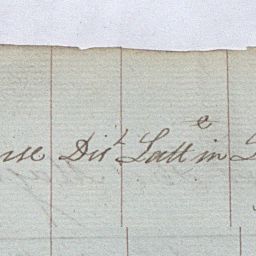 rse Dis^t Latt^e in